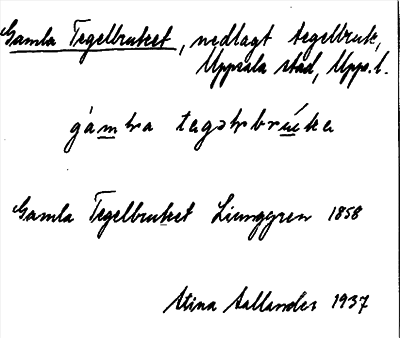 Gamla Tegelbruket, nedlagt tegelbruk,
Uppsala stad, Upps.l.
gámła tegəłbrúkə
Gamla Tegelbruket Ljunggren 1858
Stina Aallander 1937